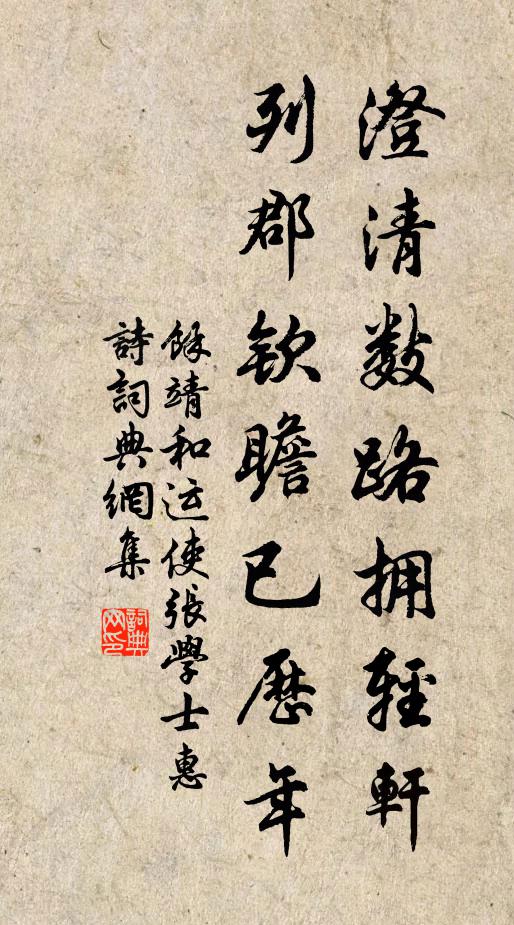 澄清数路拥輕軒
列郡欽瞻已歷年
餘靖和运使張學士惠
詩詞典網集
詞典网印